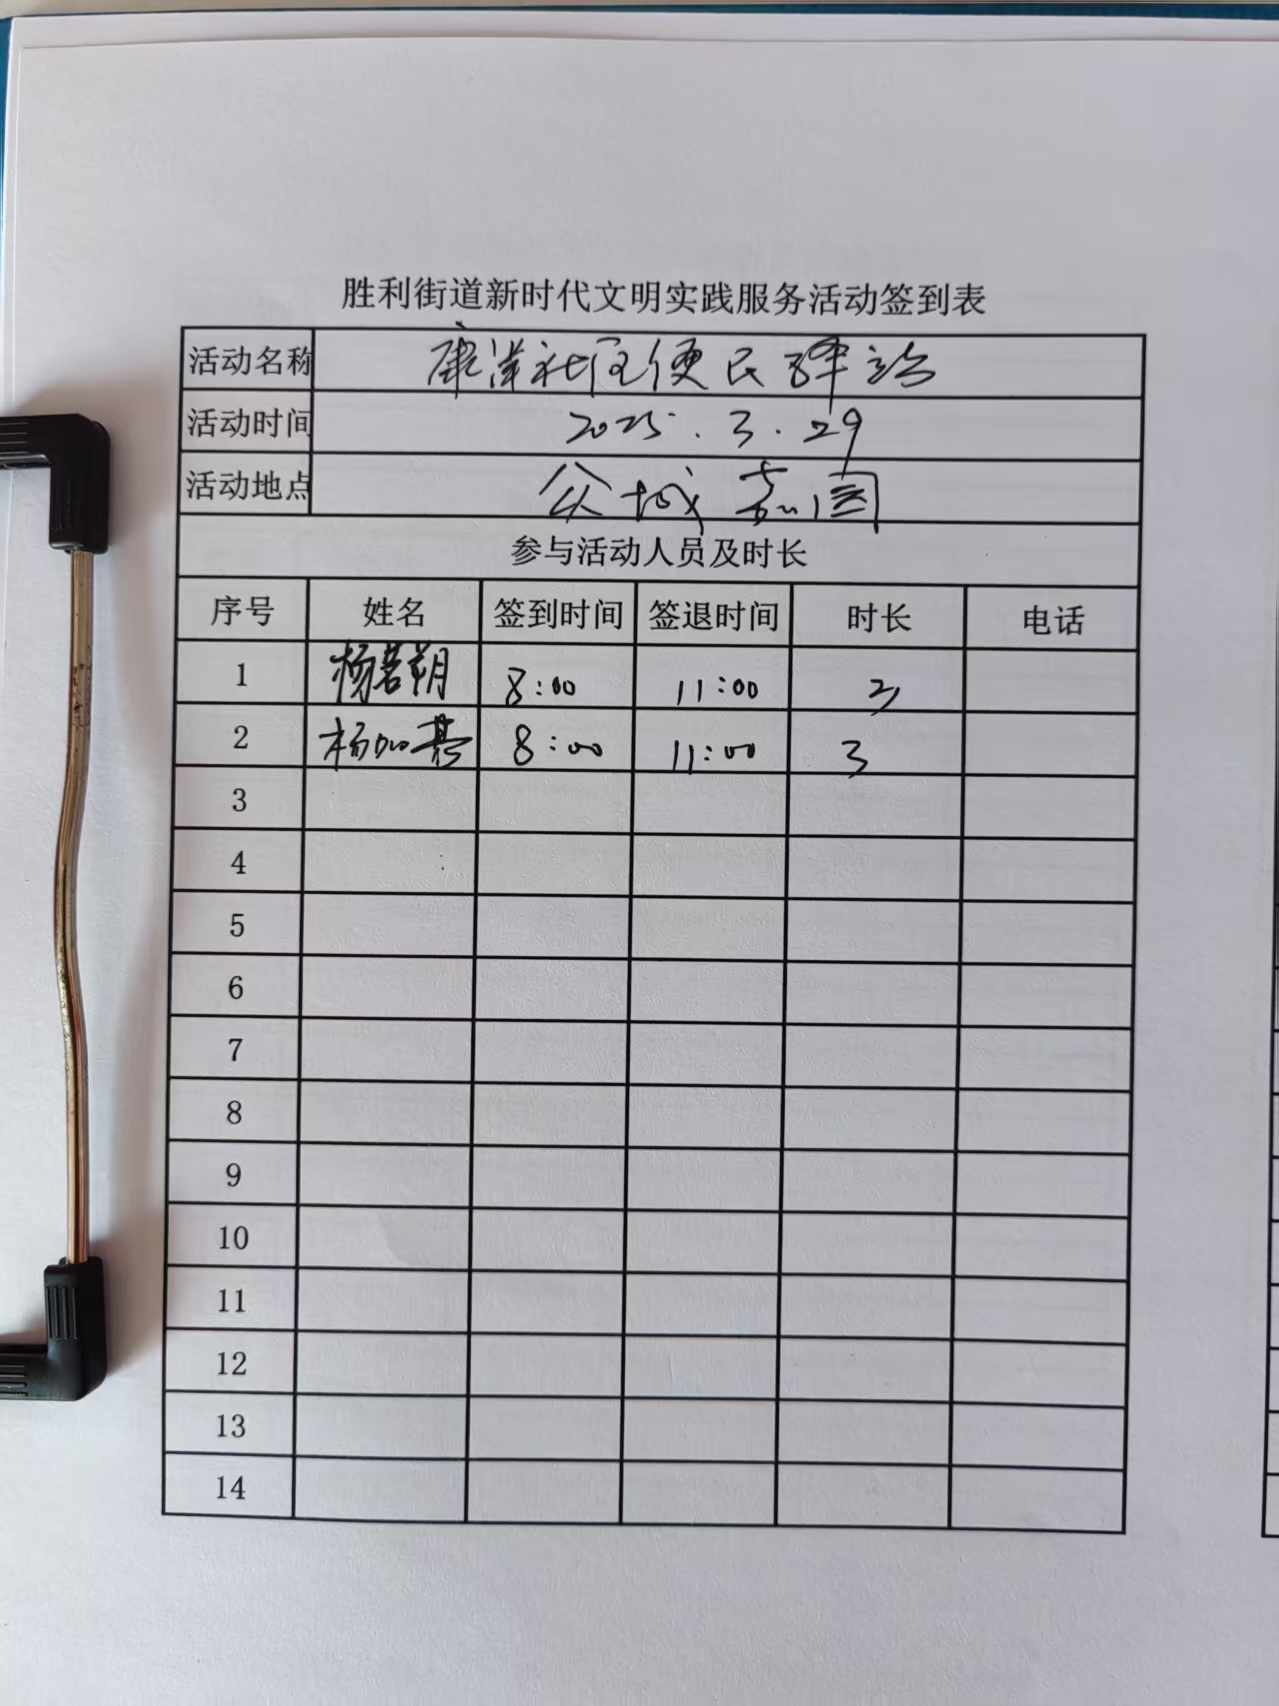 胜利街道新时代文明实践服务活动签到表
活动名称 康洋社区便民驿站
活动时间 2025.3.29
活动地点 众城嘉园
参与活动人员及时长
序号 姓名 签到时间 签退时间 时长 电话
1 杨若朔 8:00 11:00 3
2 杨加基 8:00 11:00 3
3
4
5
6
7
8
9
10
11
12
13
14